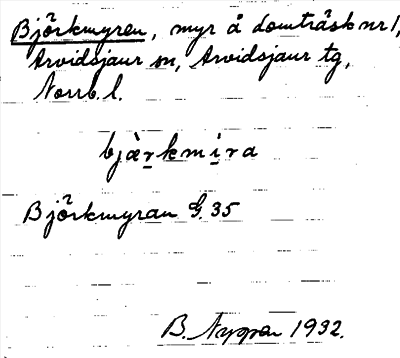 Björkmyren, myr å Domträsk nr 1,
Arvidsjaur sn, Arvidsjaur tg,
Norrb. l.
bjàrkmira
Björkmyran G. 35
B. Nygren 1932.